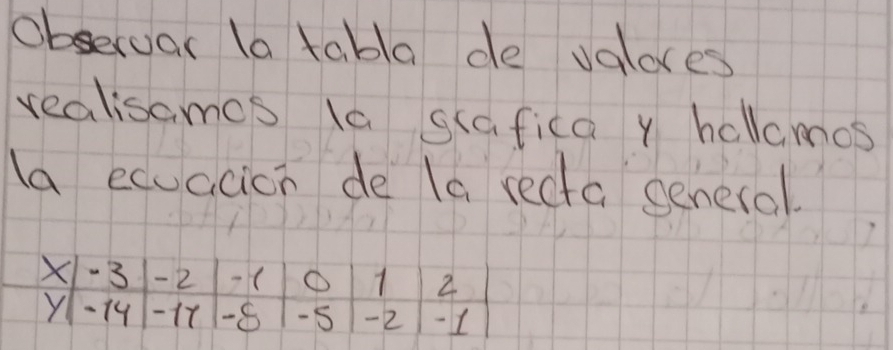 Observar la tabla de valores
realisamos la grafica y hallamos
la ecuación de la recta general.
X -3 -2 -1 0 1 2
Y -14 -11 -8 -5 -2 -1